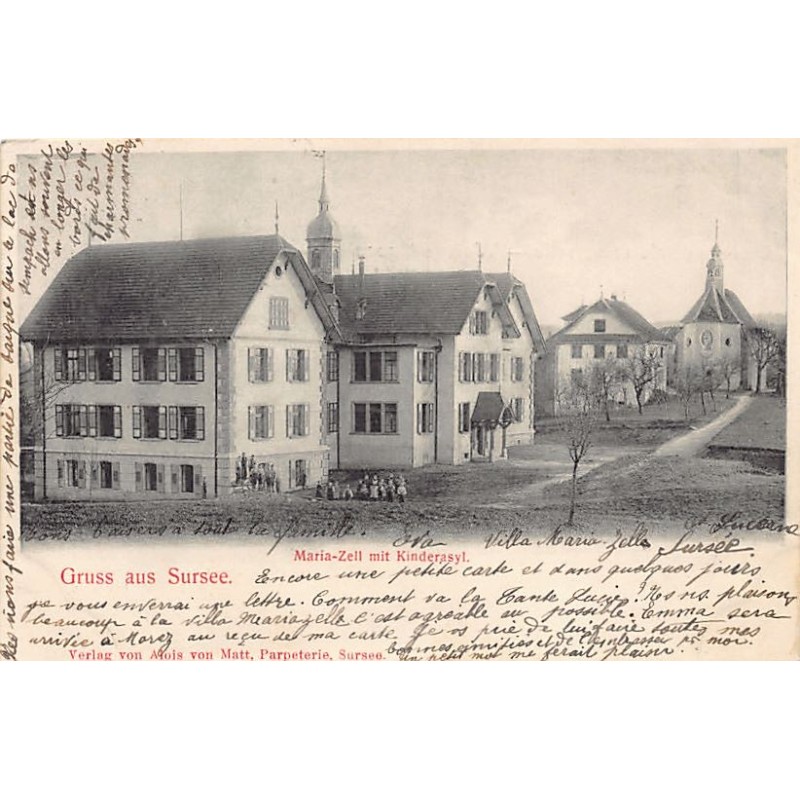 Maria-Zell mit Kinderasyl.
Gruss aus Sursee.
Verlag von Alois von Matt, Parpeterie, Sursee.
Encore une petite carte et dans quelques jours
je vous enverrai une lettre. Comment va la Tante Lucie? Ns ns. plaisons
beaucoup à la villa Mariazelle c'est agréable au possible. Emma sera
arrivée à Morez au reçu de ma carte. Je vs prie de lui faire toutes mes
bonnes amitiés et de l'embrasser pr moi.
un petit mot me ferait plaisir.
Bons baisers à toute la famille. Eva
Villa Maria-Zelle
Sursée
Ct Lucerne
nous faire une partie de barque sur le lac de
Sempach et ns
allons souvent
en longer les
bords ce qui
fait de
charmantes
promenades